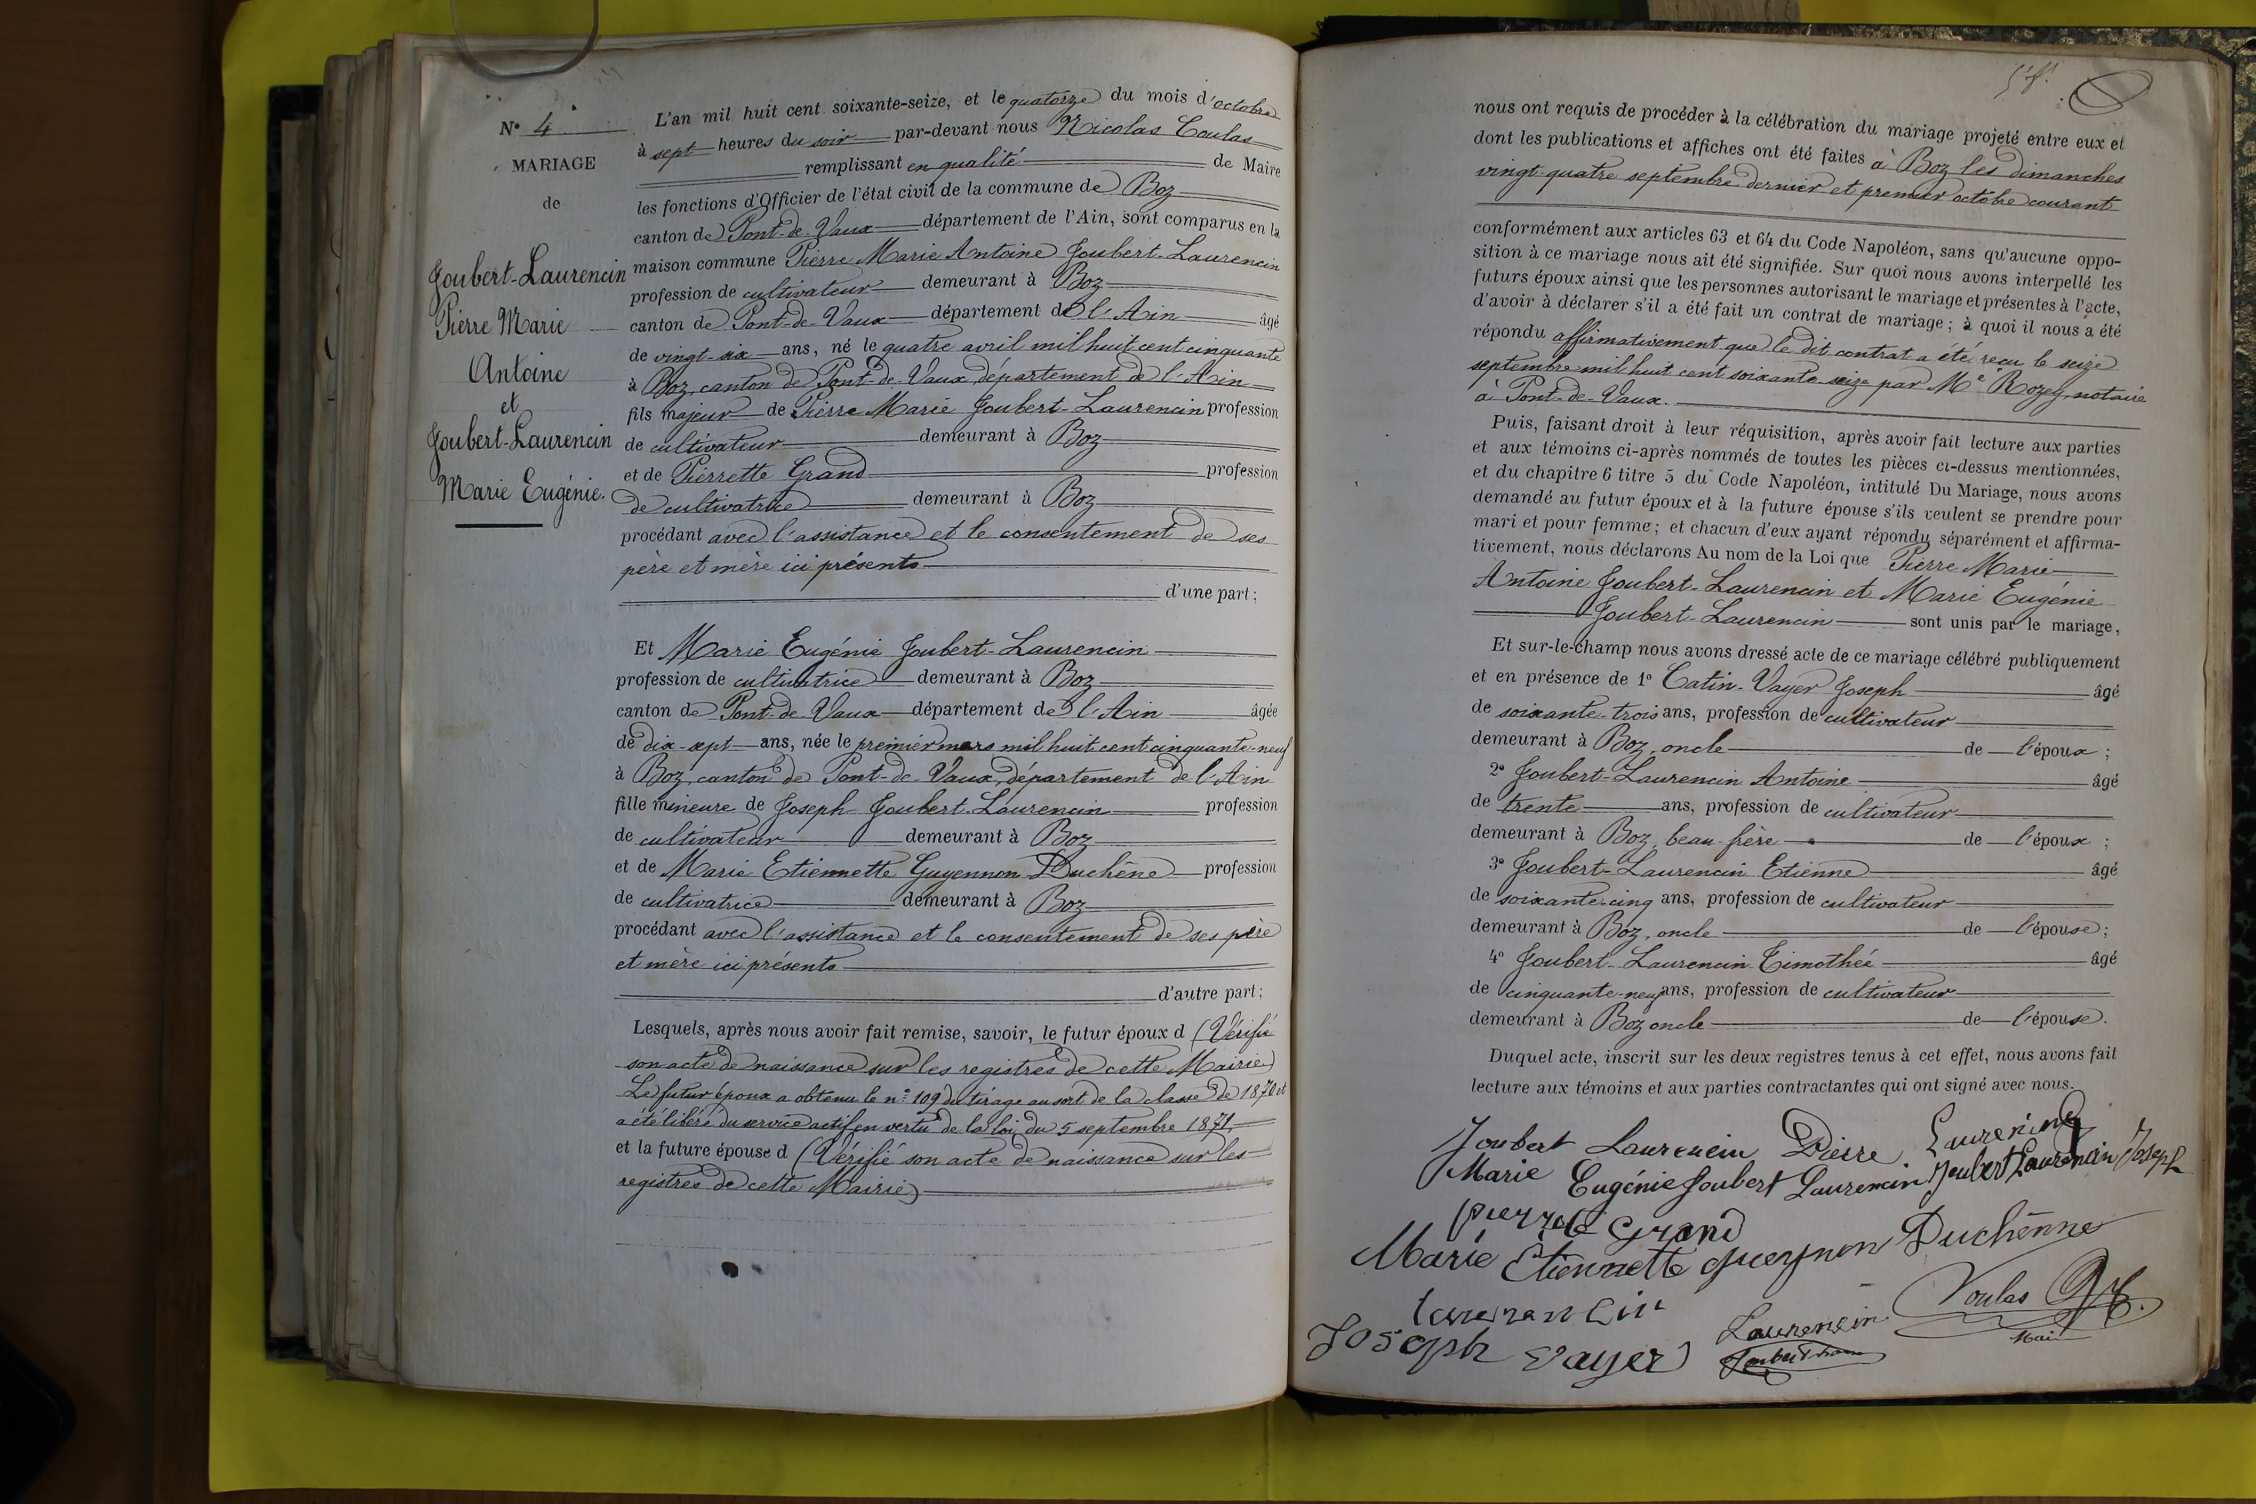 N° 4
MARIAGE
de
Joubert-Laurencin
Pierre Marie
Antoine
et
Joubert-Laurencin
Marie Eugénie.
L'an mil huit cent soixante-seize, et le quatorze du mois d'octobre
à sept heures du soir par-devant nous Nicolas Coulas
remplissant en qualité de Maire
les fonctions d'Officier de l'état civil de la commune de Boz
canton de Pont-de-Vaux département de l'Ain, sont comparus en la
maison commune Pierre Marie Antoine Joubert-Laurencin
profession de cultivateur demeurant à Boz
canton de Pont-de-Vaux département de l'Ain âgé
de vingt-six ans, né le quatre avril mil huit cent cinquante
à Boz, canton de Pont-de-Vaux, département de l'Ain
fils majeur de Pierre Marie Joubert-Laurencin profession
de cultivateur demeurant à Boz
et de Pierrette Grand profession
de cultivatrice demeurant à Boz
procédant avec l'assistance et le consentement de ses
père et mère ici présents
d'une part;
Et Marie Eugénie Joubert-Laurencin
profession de cultivatrice demeurant à Boz
canton de Pont-de-Vaux département de l'Ain âgée
de dix-sept ans, née le premier mars mil huit cent cinquante-neuf
à Boz, canton de Pont-de-Vaux, département de l'Ain
fille mineure de Joseph Joubert-Laurencin profession
de cultivateur demeurant à Boz
et de Marie Etiennette Guyennon Duchêne profession
de cultivatrice demeurant à Boz
procédant avec l'assistance et le consentement de ses père
et mère ici présents
d'autre part;
Lesquels, après nous avoir fait remise, savoir, le futur époux d (Vérifié
son acte de naissance sur les registres de cette Mairie)
Le futur époux a obtenu le n° 109 du tirage au sort de la classe de 1870 et
a été libéré du service actif en vertu de la loi du 5 septembre 1871
et la future épouse d (Vérifié son acte de naissance sur les
registres de cette Mairie)
nous ont requis de procéder à la célébration du mariage projeté entre eux et
dont les publications et affiches ont été faites à Boz les dimanches
vingt-quatre septembre dernier et premier octobre courant
conformément aux articles 63 et 64 du Code Napoléon, sans qu'aucune oppo-
sition à ce mariage nous ait été signifiée. Sur quoi nous avons interpellé les
futurs époux ainsi que les personnes autorisant le mariage et présentes à l'acte,
d'avoir à déclarer s'il a été fait un contrat de mariage; à quoi il nous a été
répondu affirmativement que le dit contrat a été reçu le seize
septembre mil huit cent soixante seize par Me Rozey, notaire
à Pont-de-Vaux.
Puis, faisant droit à leur réquisition, après avoir fait lecture aux parties
et aux témoins ci-après nommés de toutes les pièces ci-dessus mentionnées,
et du chapitre 6 titre 5 du Code Napoléon, intitulé Du Mariage, nous avons
demandé au futur époux et à la future épouse s'ils veulent se prendre pour
mari et pour femme; et chacun d'eux ayant répondu séparément et affirma-
tivement, nous déclarons Au nom de la Loi que Pierre Marie
Antoine Joubert-Laurencin et Marie Eugénie
Joubert-Laurencin sont unis par le mariage,
Et sur-le-champ nous avons dressé acte de ce mariage célébré publiquement
et en présence de 1° Catin-Vayer Joseph âgé
de soixante-trois ans, profession de cultivateur
demeurant à Boz, oncle de l'époux;
2° Joubert-Laurencin Antoine âgé
de trente ans, profession de cultivateur
demeurant à Boz, beau frère de l'époux;
3° Joubert-Laurencin Etienne âgé
de soixante-cinq ans, profession de cultivateur
demeurant à Boz, oncle de l'épouse;
4° Joubert-Laurencin Timothée âgé
de cinquante-neuf ans, profession de cultivateur
demeurant à Boz oncle de l'épouse.
Duquel acte, inscrit sur les deux registres tenus à cet effet, nous avons fait
lecture aux témoins et aux parties contractantes qui ont signé avec nous.
Joubert Laurencin Pierre Laurencin
Marie Eugénie Joubert Laurencin Joubert Laurencin Joseph
Pierrette Grand
Marie Etiennette gueynon Duchênne
Laurencin Coulas
Joseph Vayer Laurencin
Joubert